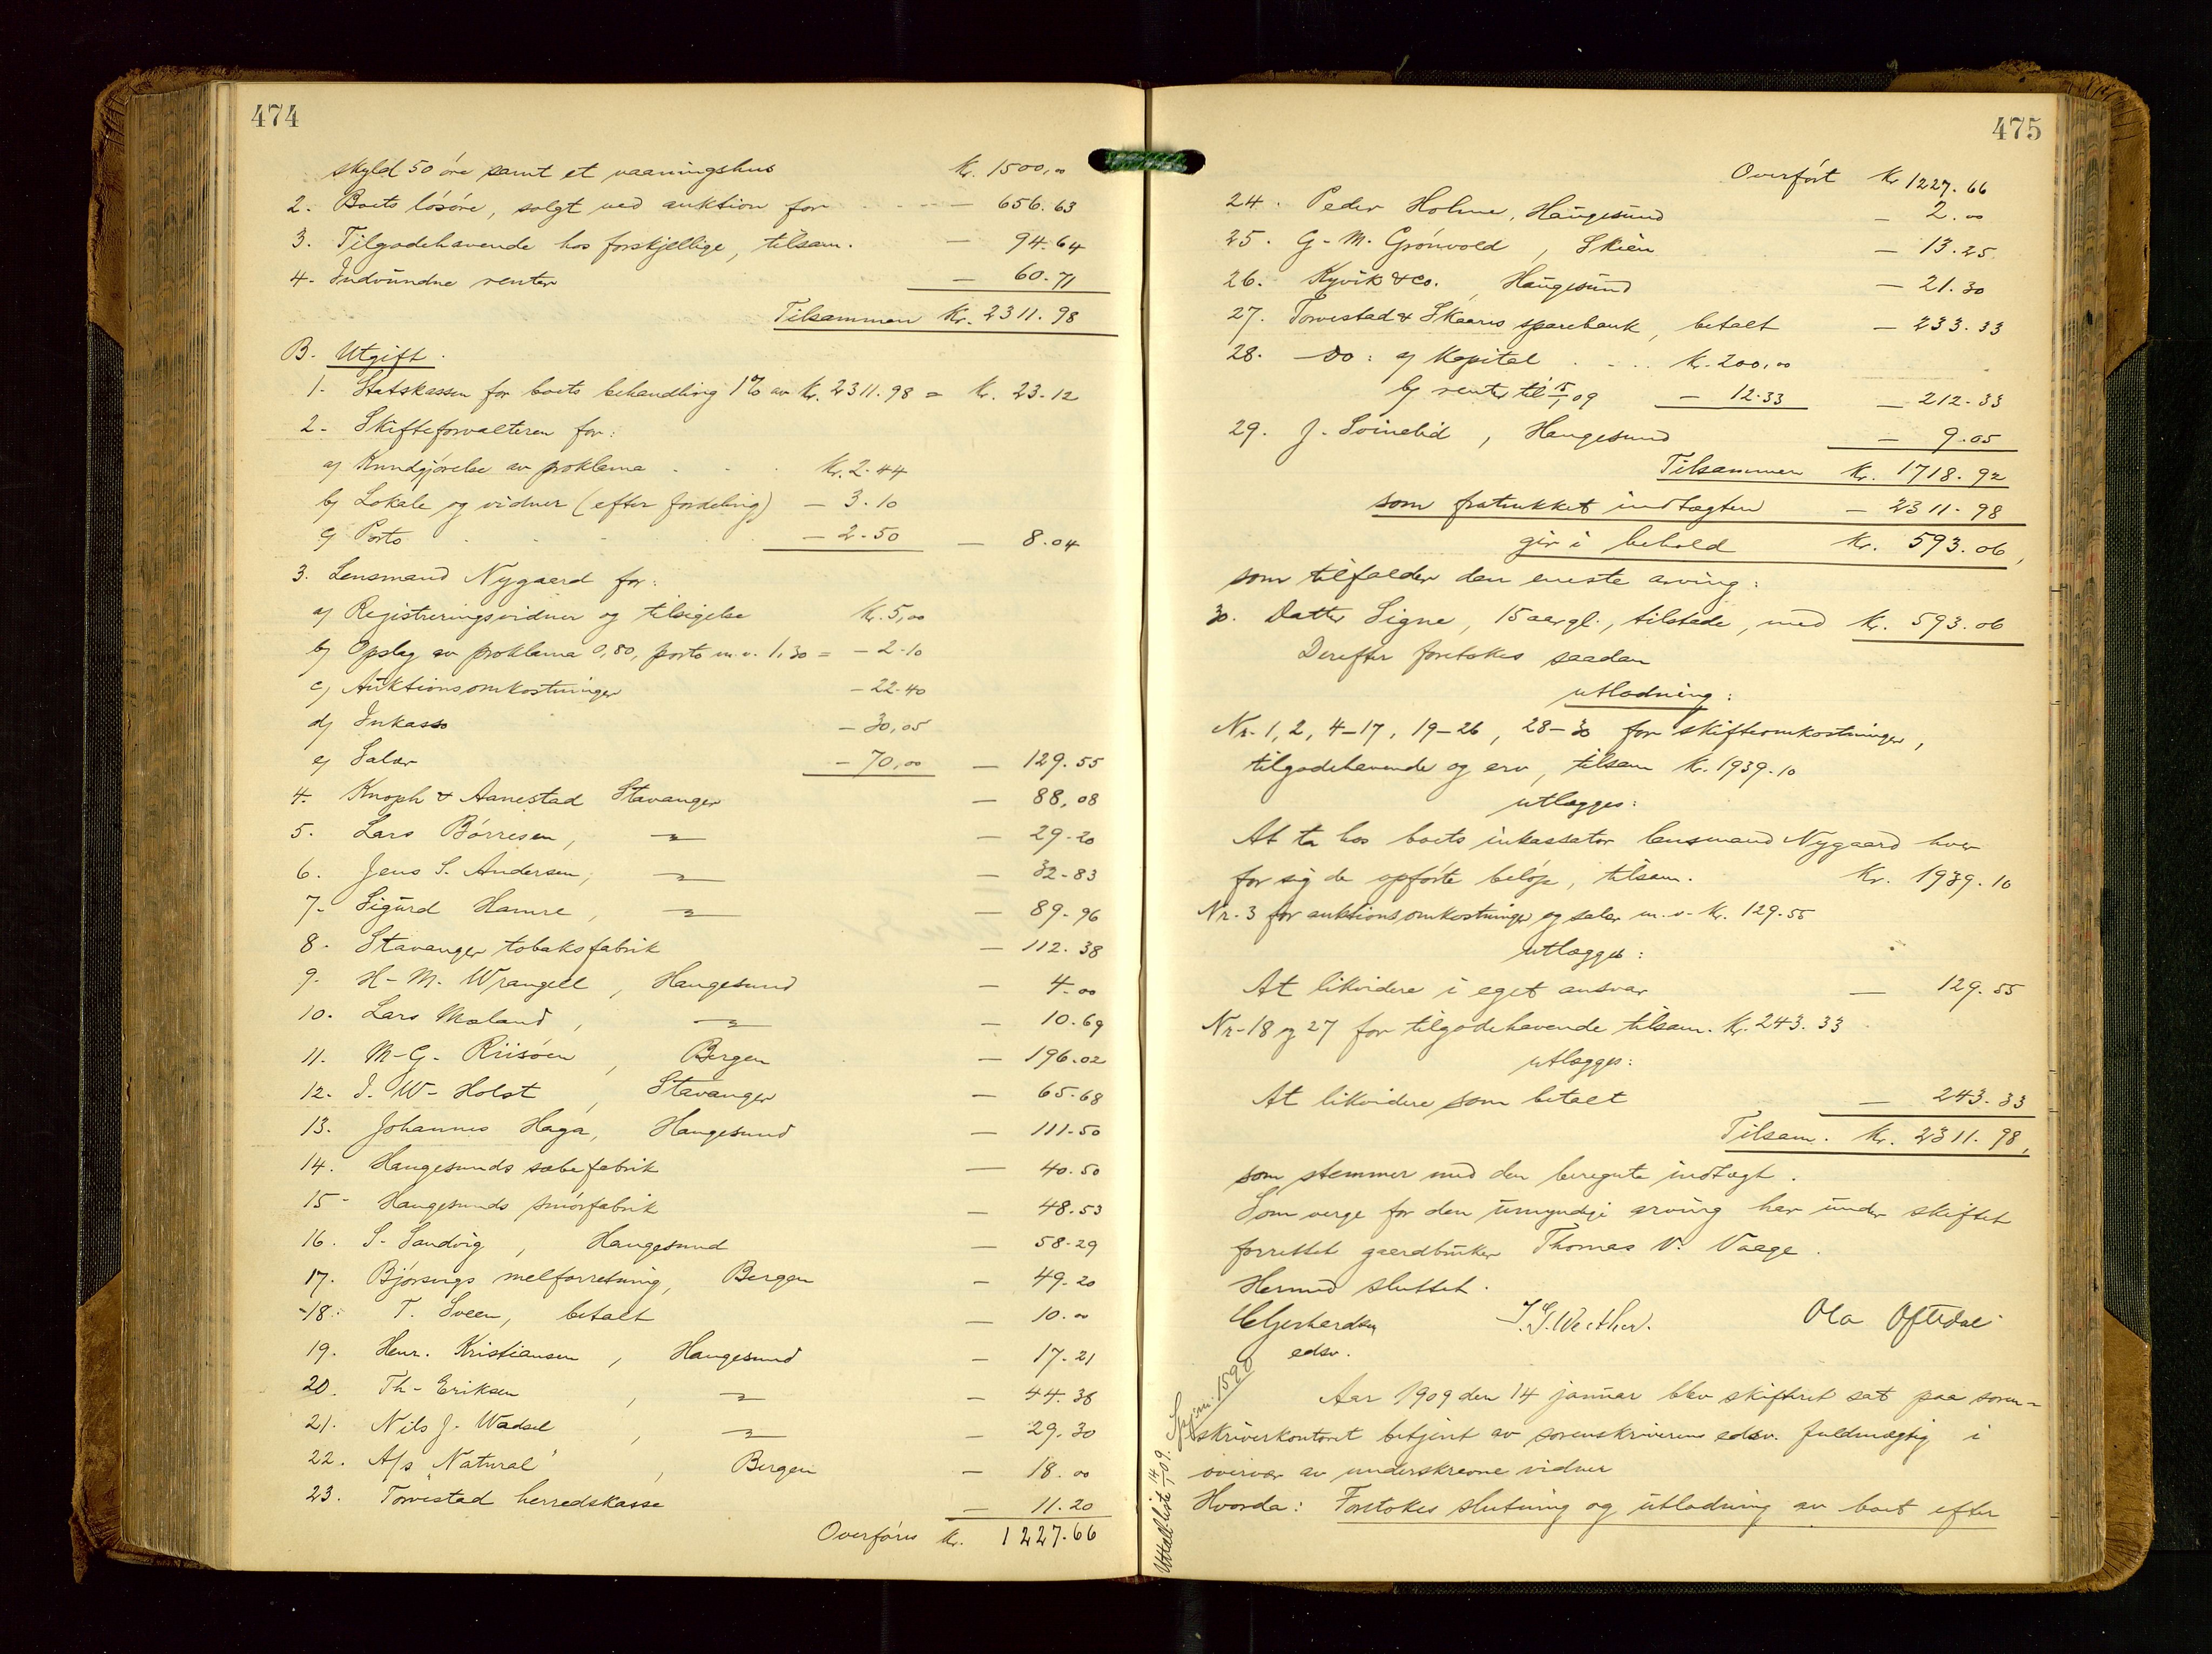 474
skyld 50 øre samt et vaaningshus Kr. 1500,00
2. Boets løsøre, solgt ved auktion for - - - — 656.63
3. Tilgodehavende hos forskjellige, tilsam. — 94.64
4. Indvundne renter — 60.71
Tilsammen Kr. 2311.98
B. Utgift.
1. Statskassen for boets behandling 1% av Kr. 2311.98 = Kr. 23.12
2. Skifteforvalteren for:
a) Kundgjørelse av proklama Kr. 2.44
b) Lokale og vidner (efter fordeling) — 3.10
c) Porto — 2.50 — 8.04
3. Lensmand Nygaard for:
a) Registreringsvidner og tilsigelse Kr. 5,00
b) Opslag av proklama 0,80, porto m.v. 1,30 = — 2.10
c) Auktionsomkostninger — 22.40
d) Inkasso — 30,05
e) Salær — 70,00 — 129.55
4. Knoph & Aanestad Stavanger — 88,08
5. Lars Børresen, —"— — 29.20
6. Jens S. Andersen, —"— — 32.83
7. Sigurd Hamre, —"— — 89.96
8. Stavanger tobaksfabrik — 112.38
9. H. M. Wrangell, Haugesund — 4.00
10. Lars Mæland, —"— — 10.69
11. M. G. Riisøen, Bergen — 196.02
12. I. W. Holst, Stavanger — 65.68
13. Johannes Haga, Haugesund — 111.50
14. Haugesunds sæbefabrik — 40.50
15. Haugesunds smørfabrik — 48.53
16. S. Sandvig, Haugesund — 58.29
17. Bjørsvigs melforretning, Bergen — 49.20
18. T. Sveen, betalt — 10.00
19. Henr. Kristiansen, Haugesund — 17.21
20. Th. Eriksen, —"— — 44.38
21. Nils J. Wadsel, —"— — 29.30
22. A/s "Natural", Bergen — 18.00
23. Torvestad herredskasse — 11.20
Overføres Kr. 1227.66
475
Overført Kr 1227.66
24. Peder Holme, Haugesund — 2.00
25. G. M. Grønvold, Skien — 13.25
26. Kyvik & Co., Haugesund — 21.30
27. Torvestad & Skaares sparebank, betalt — 233.33
28. Do: a) Kapital . . . . Kr. 200,00
b) renter til 15/1 09 — 12.33 — 212.33
29. J. Svinelid, Haugesund — 9.05
Tilsammen Kr. 1718.92
som fratrukket indtægten — 2311.98
gir i behold Kr. 593.06,
som tilfalder den eneste arving:
30. Datter Signe, 15 aar gl., tilstede, med Kr. 593.06
Derefter foretokes saadan
utlodning:
Nr. 1, 2, 4-17, 19-26, 28-30 for skifteomkostninger,
tilgodehavende og arv, tilsam Kr. 1939.10
utlægges:
At ta hos boets inkassator lensmand Nygaard hver
for sig de opførte beløp, tilsam. Kr. 1939.10
Nr. 3 for auktionsomkostninger og salær m.v. Kr. 129.55
utlægges:
At likvidere i eget ansvar — 129.55
Nr. 18 og 27 for tilgodehavende tilsam. Kr. 243.33
utlægges:
At likvidere som betalt — 243.33
Tilsam. Kr. 2311.98,
som stemmer med den beregnte indtægt.
Som verge for den umyndige arving har under skiftet
forrettet gaardbruker Thomas V. Vaage.
Hermed sluttet.
Gjerhardsen T. G. Werther. Ola Oftedal
edsv.
Aar 1909 den 14 januar blev skifteret sat paa soren-
skriverkontoret betjent av sorenskriverens edsv. fuldmægtig i
overvær av underskrevne vidner
Hvorda: Foretokes slutning og utlodning av boet efter
14/1 09.